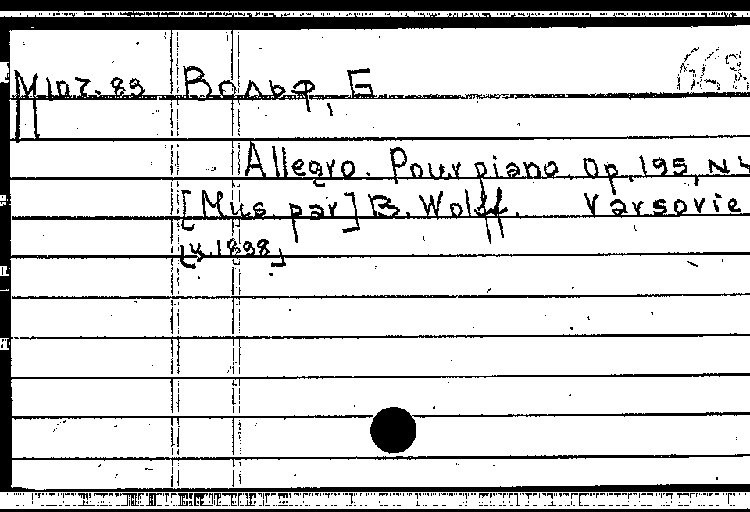 М 107.83 Вольф, Б 668
Allegro. Pour piano. Op. 195, N
[Mus. par] B. Wolff. Varsovie
[ц.1898]